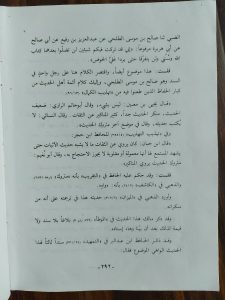 الضبي ثنا صالح بن موسى الطلحي عن عبدالعزيز بن رفيع عن أبي صالح
عن أبي هريرة مرفوعاً: «إني قد تركت فيكم شيئين لن تضلوا بعدهما كتاب
الله وسنتي ولن يتفرقا حتى يردا عليَّ الحوض».
قلت: هذا موضوع أيضاً، وأختصر الكلام هنا على رجل واحدٍ في
وهو صالح بن موسى الطلحي، وإليك كلام أئمة أهل الحديث من
كبار الحفاظ الذين طعنوا فيه من «تهذيب الكمال»
قال يحيى بن معين: ليس بشيء، وقال أبوحاتم الرازي: ضعيف
الحديث، منكر الحديث جداً، كثير المناكير عن الثقات، وقال النسائي: لا
يكتب حديثه، وقال في موضع آخر: متروك الحديث».
وفي «تهذيب التهذيب» للحافظ ابن حجر:
قال ابن حبان: كان يروي عن الثقات ما لا يشبه حديث الأثبات حتى
يشهد المستمع لها أنها معمولة أو مقلوبة لا يجوز الاحتجاج به، وقال أبو نُعيم:
متروك الحديث يروي المناكير».
قلت: وقد حكم عليه الحافظ في «التقريب» بأنه: متروك
والذهبي في «الكاشف» بأنه: «
وأورد الذهبي في «الميزان» حديثه هذا في ترجمته على أنه من
منكراته.
وقد ذكر مالك هذا الحديث في «الموطأ» بلاغاً بلا سند ولا
قيمة لذلك بعد أن بينا وهاء إسناده.
وقد ذكر الحافظ ابن عبدالبر في «التمهيد» سنداً ثالثاً لهذا
الحديث الواهي الموضوع فقال: